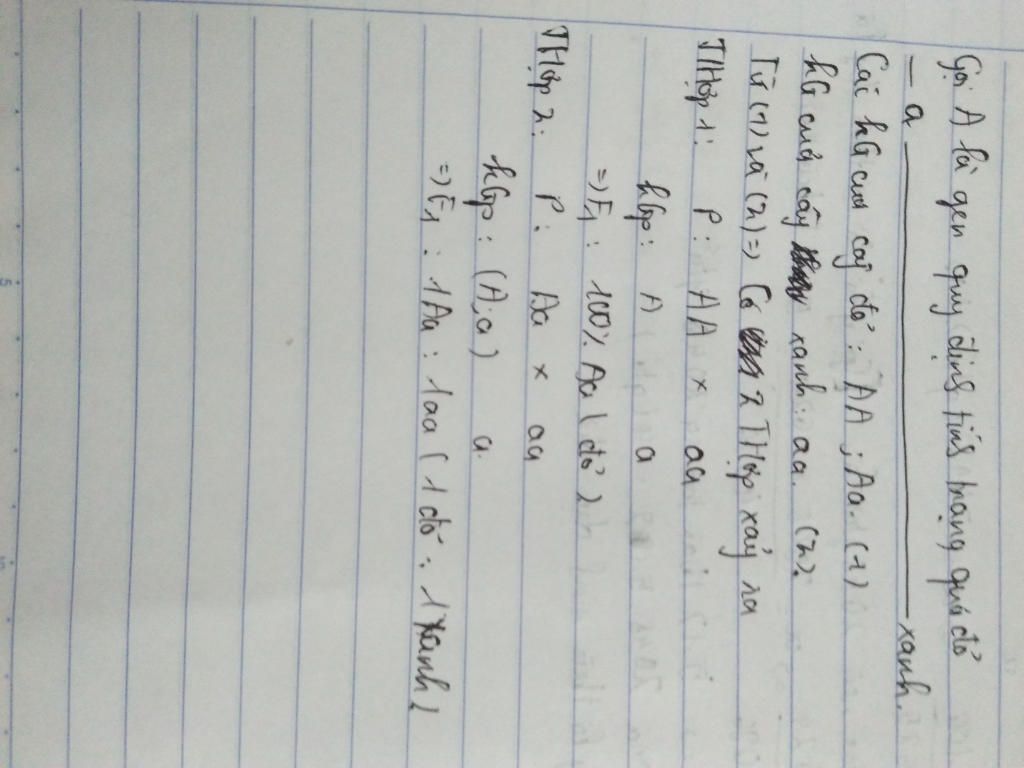 Gọi A là gen quy định tính trạng quả đỏ
— a — xanh.
Các kG của cây đỏ : AA ; Aa. (1)
kG của cây xanh : aa. (2).
Từ (1) và (2) => Có 2 THợp xảy ra
THợp 1 : P : AA x aa
kGp : A a
=> F1 : 100% Aa ( đỏ )
THợp 2 : P : Aa x aa
kGp : (A;a) a.
=> F1 : 1Aa : 1aa ( 1 đỏ : 1 xanh )